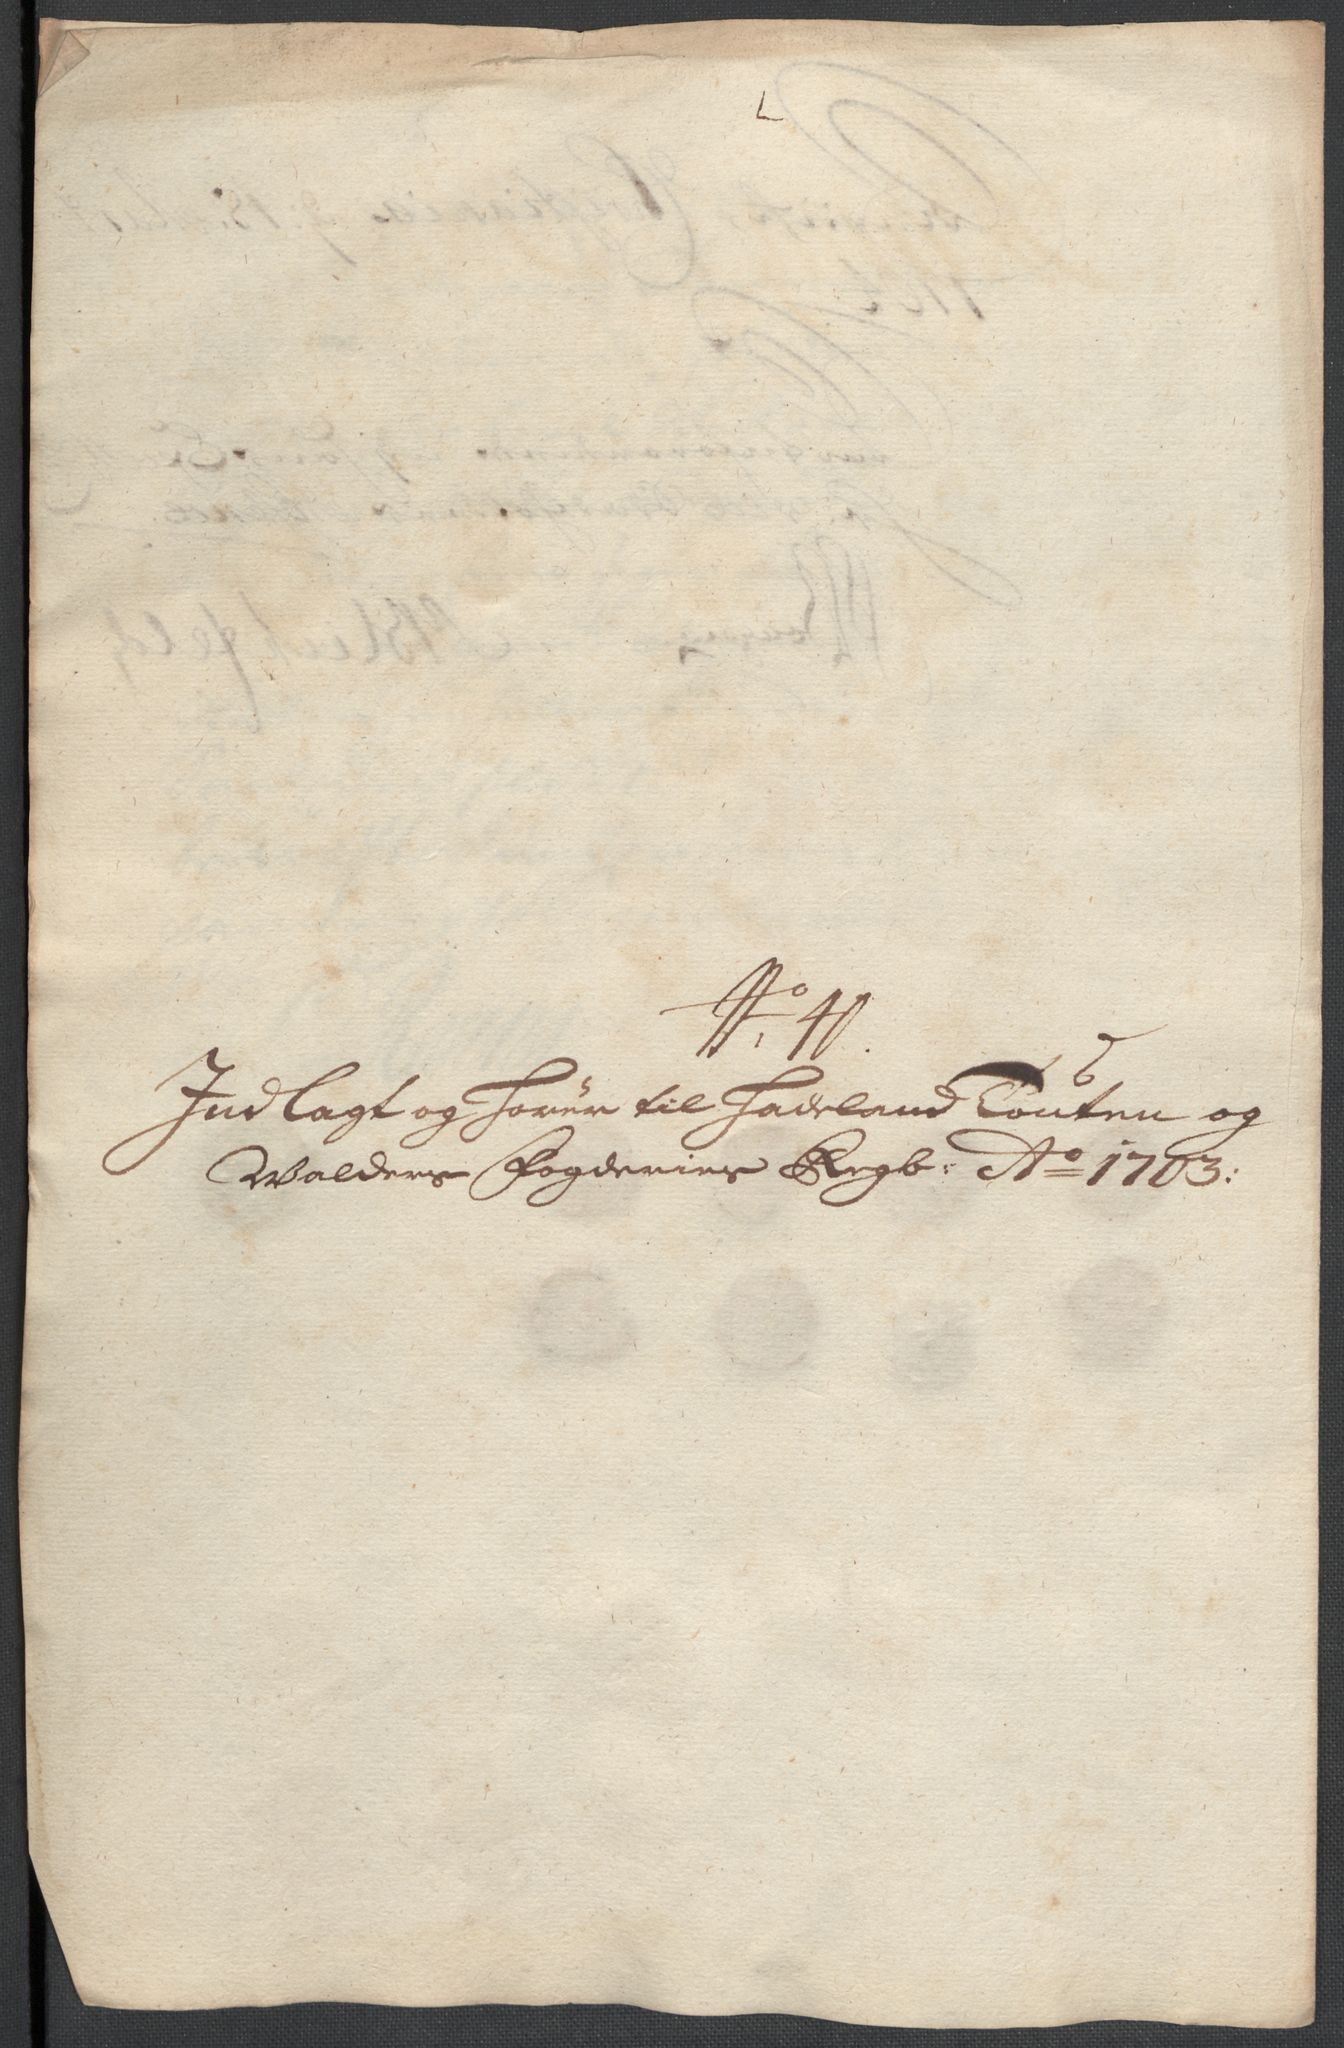 No. 40.
Indlagt og hører til Hadeland Touten og
Walders Fogderies Regb: Ao 1703: